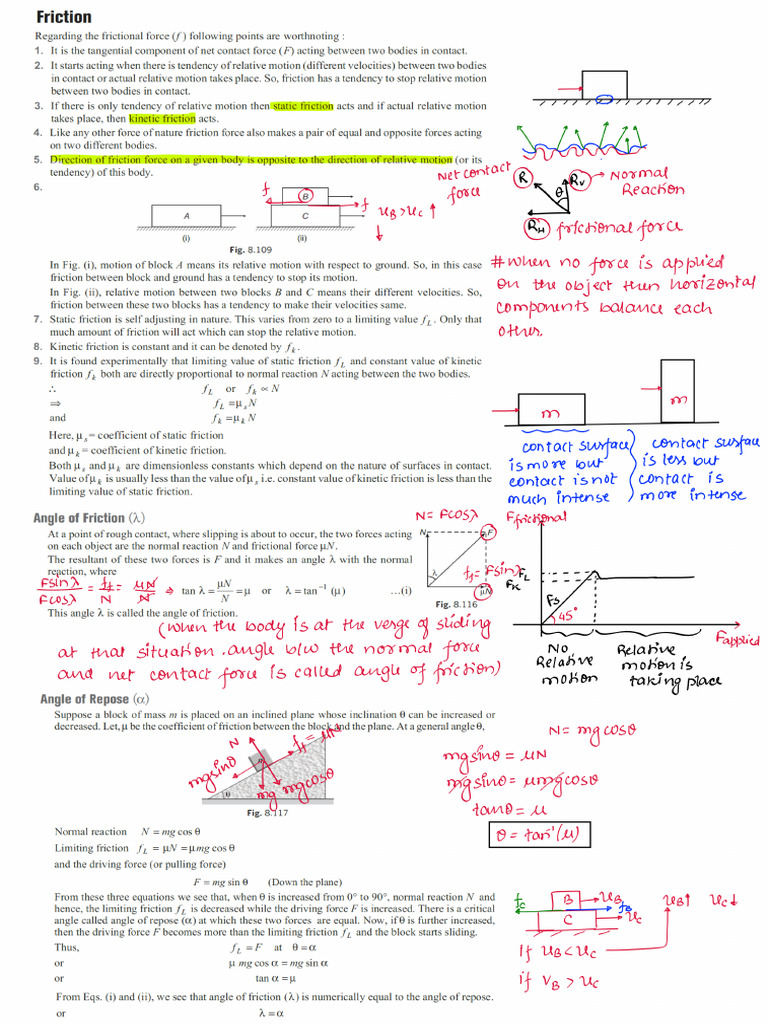 Friction
Regarding the frictional force (f) following points are worthnoting :
1. It is the tangential component of net contact force (F) acting between two bodies in contact.
2. It starts acting when there is tendency of relative motion (different velocities) between two bodies
in contact or actual relative motion takes place. So, friction has a tendency to stop relative motion
between two bodies in contact.
3. If there is only tendency of relative motion then static friction acts and if actual relative motion
takes place, then kinetic friction acts.
4. Like any other force of nature friction force also makes a pair of equal and opposite forces acting
on two different bodies.
5. Direction of friction force on a given body is opposite to the direction of relative motion (or its
tendency) of this body.
6.
A
(i)
f
B
C
f
(ii)
u_B > u_C ↑
↓
Fig. 8.109
Net contact
force
R
θ
R_V → Normal
Reaction
R_H → frictional force
In Fig. (i), motion of block A means its relative motion with respect to ground. So, in this case
friction between block and ground has a tendency to stop its motion.
In Fig. (ii), relative motion between two blocks B and C means their different velocities. So,
friction between these two blocks has a tendency to make their velocities same.
# When no force is applied
on the object then horizontal
components balance each
other.
7. Static friction is self adjusting in nature. This varies from zero to a limiting value f_L. Only that
much amount of friction will act which can stop the relative motion.
8. Kinetic friction is constant and it can be denoted by f_k.
9. It is found experimentally that limiting value of static friction f_L and constant value of kinetic
friction f_k both are directly proportional to normal reaction N acting between the two bodies.
∴ f_L or f_k ∝ N
⇒ f_L = μ_s N
and f_k = μ_k N
Here, μ_s = coefficient of static friction
and μ_k = coefficient of kinetic friction.
Both μ_s and μ_k are dimensionless constants which depend on the nature of surfaces in contact.
Value of μ_k is usually less than the value of μ_s i.e. constant value of kinetic friction is less than the
limiting value of static friction.
m
m
contact surface
is more but
contact is not
much intense
contact surface
is less but
contact is
more intense
Angle of Friction (λ)
At a point of rough contact, where slipping is about to occur, the two forces acting
on each object are the normal reaction N and frictional force μN.
The resultant of these two forces is F and it makes an angle λ with the normal
reaction, where
Fsinλ/Fcosλ = f_f/N = μN/N ⇒ tan λ = μN/N = μ or λ = tan⁻¹ (μ) …(i)
This angle λ is called the angle of friction.
N = Fcosλ
N
F
λ
f_f = Fsinλ
μN
Fig. 8.116
(when the body is at the verge of sliding
at that situation, angle b/w the normal force
and net contact force is called angle of friction)
F_frictional
F_L
F_K
F_S
45°
F_applied
No
Relative
motion
Relative
motion is
taking place
Angle of Repose (α)
Suppose a block of mass m is placed on an inclined plane whose inclination θ can be increased or
decreased. Let, μ be the coefficient of friction between the block and the plane. At a general angle θ,
N
f_f = μN
mgsinθ
mg
mgcosθ
θ
Fig. 8.117
N = mgcosθ
mgsinθ = μN
mgsinθ = μmgcosθ
tanθ = μ
θ = tan⁻¹(μ)
Normal reaction N = mg cos θ
Limiting friction f_L = μN = μmg cos θ
and the driving force (or pulling force)
F = mg sin θ (Down the plane)
From these three equations we see that, when θ is increased from 0° to 90°, normal reaction N and
hence, the limiting friction f_L is decreased while the driving force F is increased. There is a critical
angle called angle of repose (α) at which these two forces are equal. Now, if θ is further increased,
then the driving force F becomes more than the limiting friction f_L and the block starts sliding.
Thus, f_L = F at θ = α
or μ mg cos α = mg sin α
or tan α = μ
From Eqs. (i) and (ii), we see that angle of friction (λ) is numerically equal to the angle of repose.
or λ = α
f_C
B
u_B
f_B
C
u_C
u_B↑ u_C↓
If u_B < u_C
if v_B > u_C